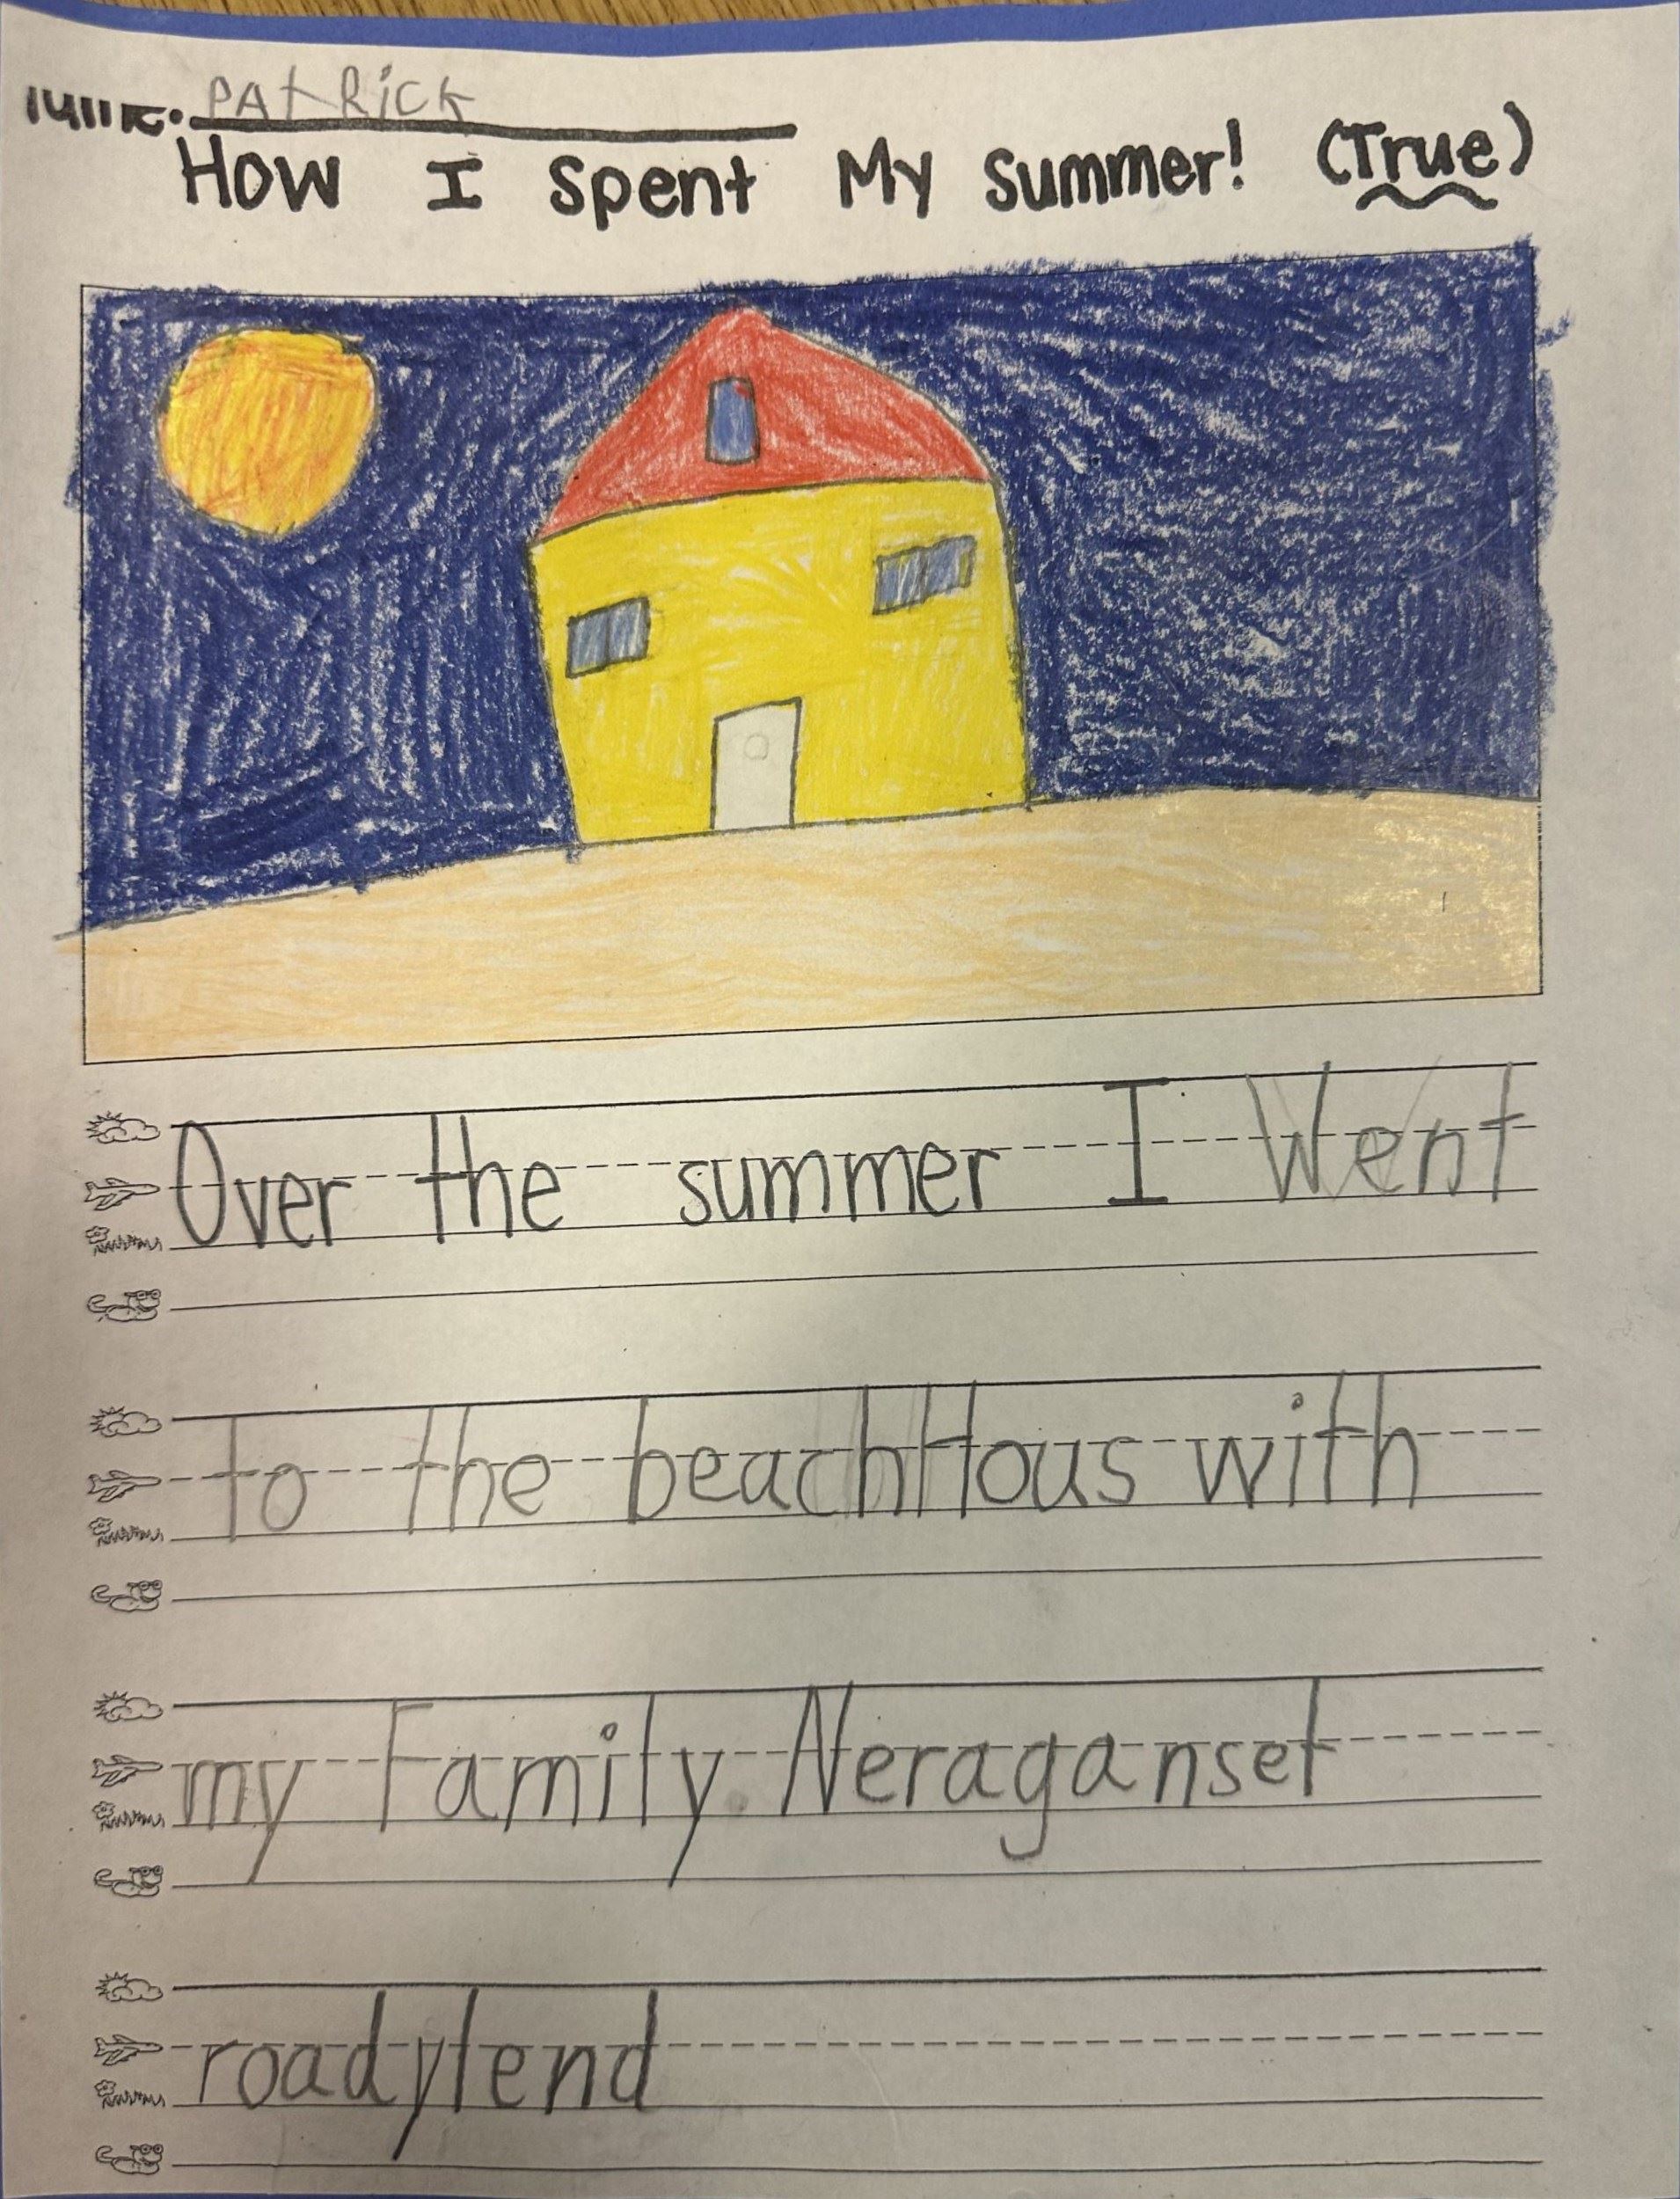 Name: PAtRicK
How I Spent My Summer! (True)
Over the summer I Went
to the beachHous with
my Family. Neraganset
roadylend